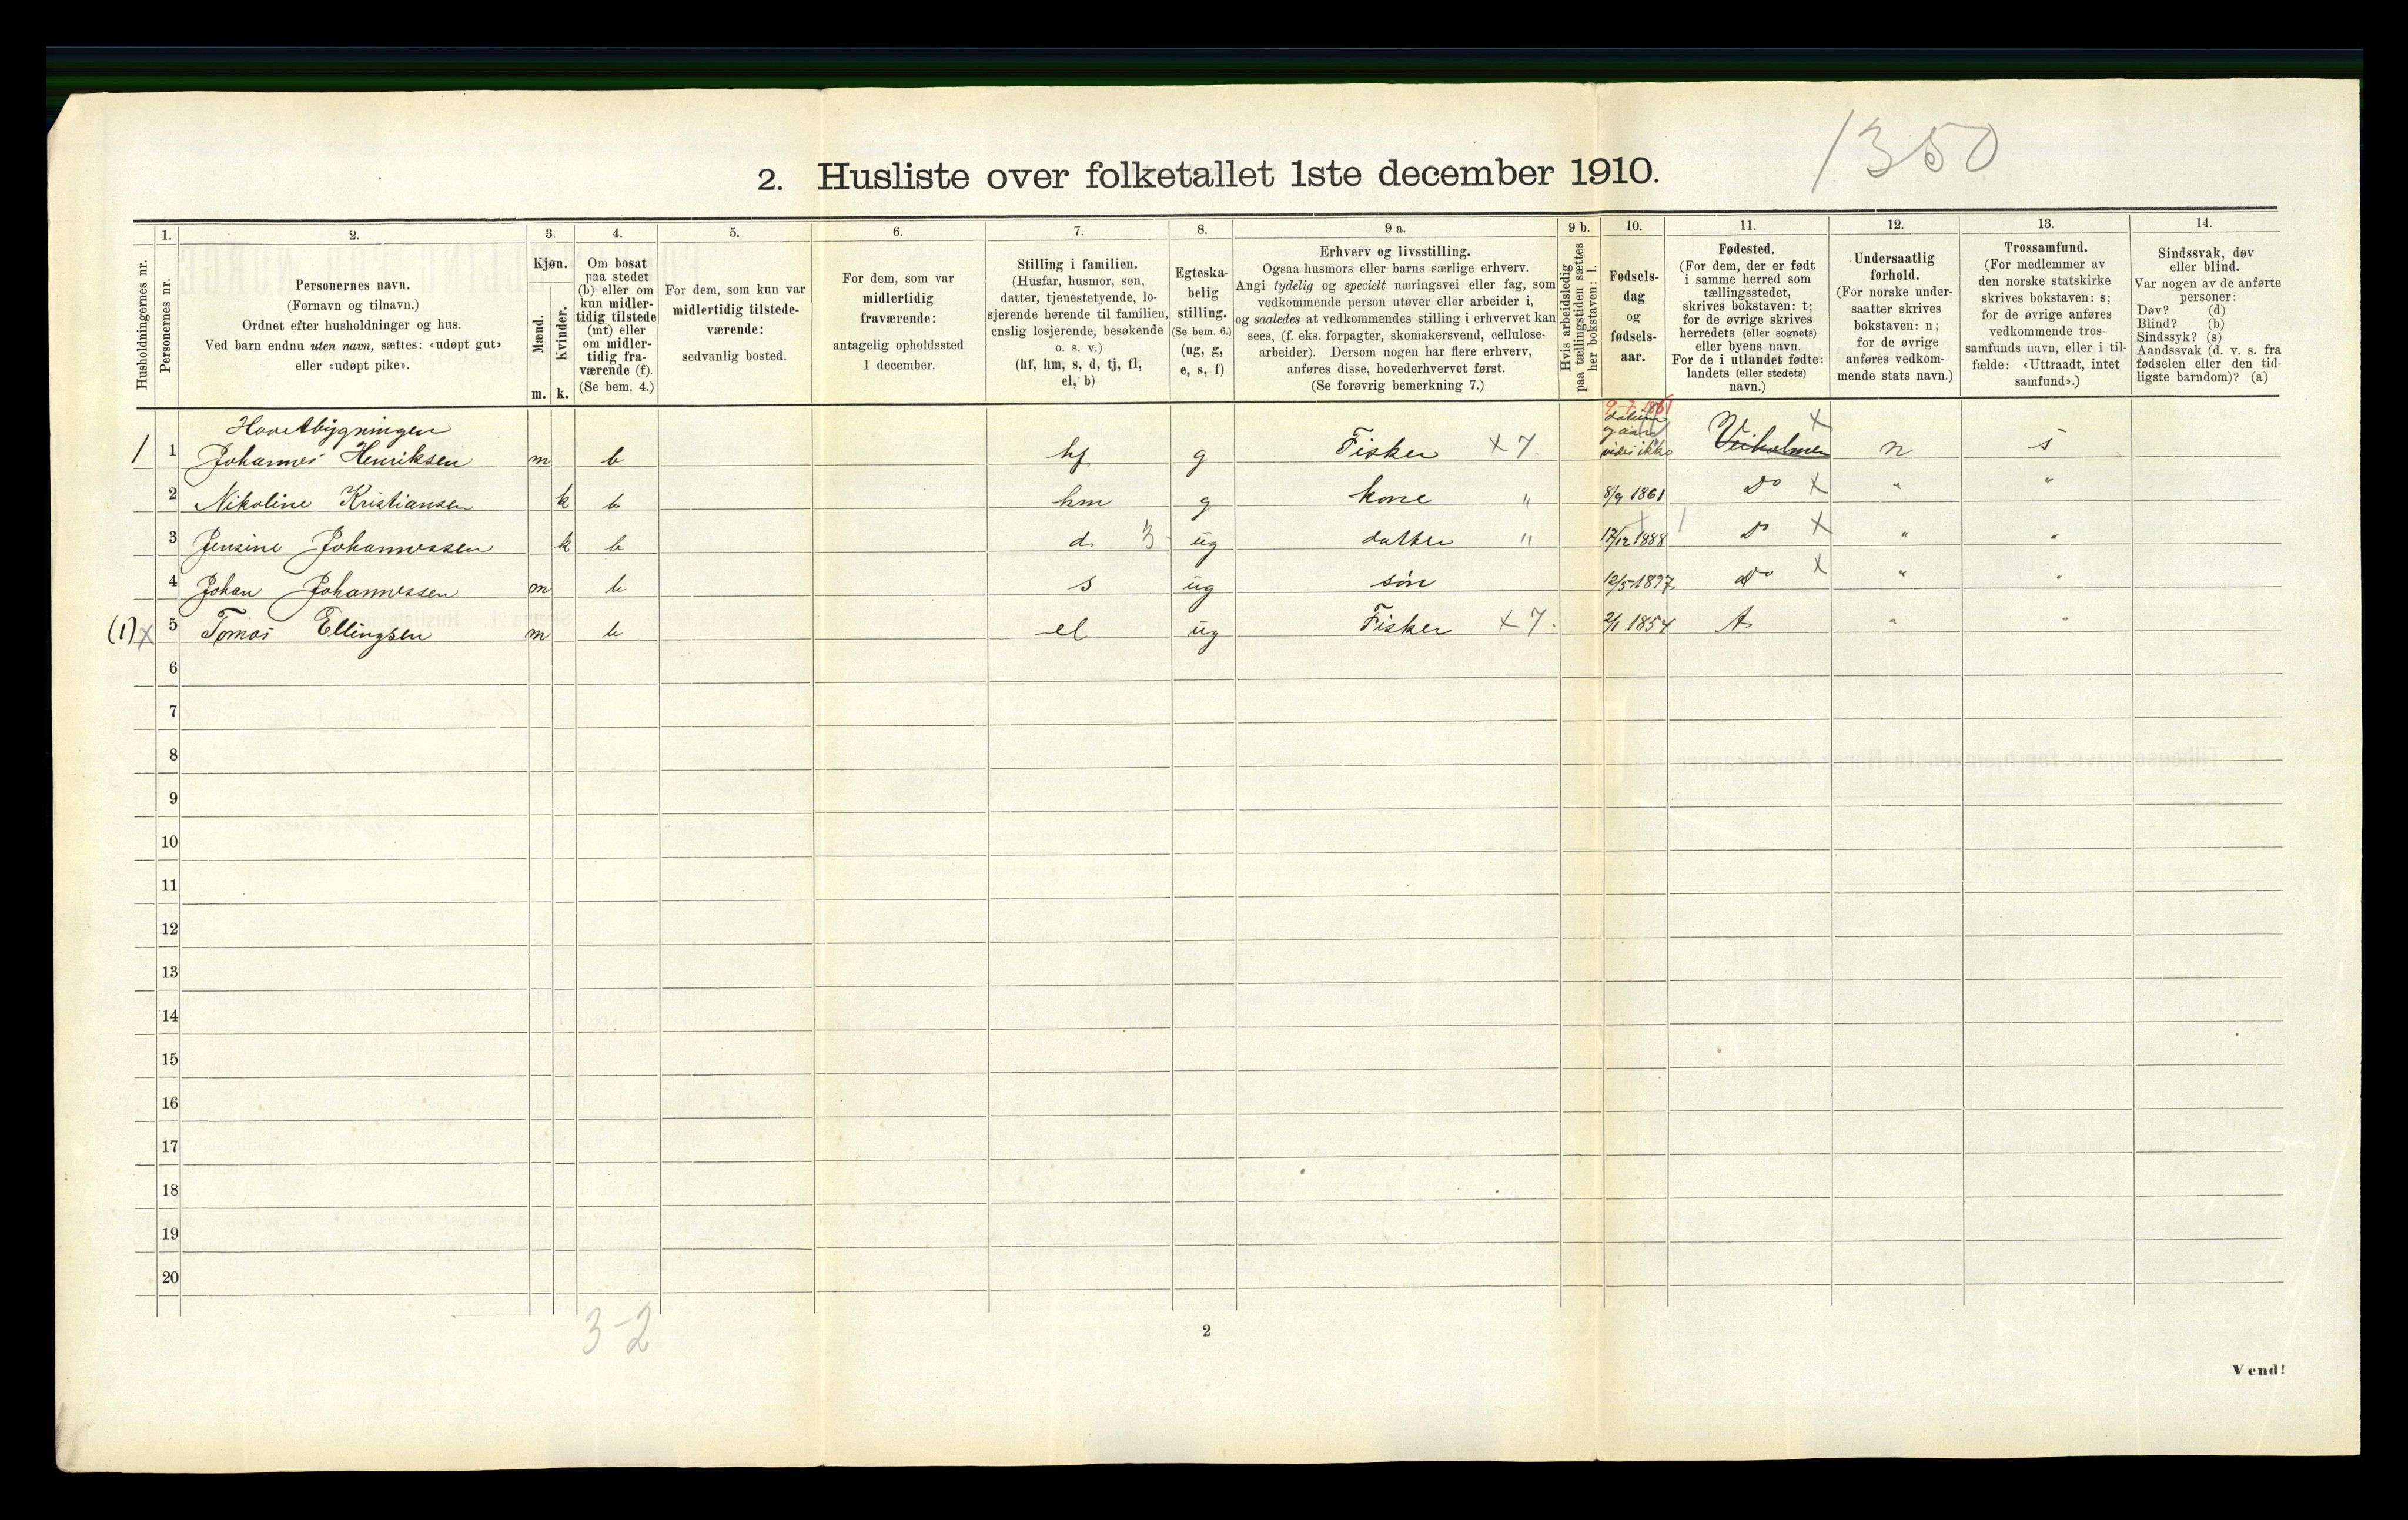 1350
2. Husliste over folketallet 1ste december 1910.
Husholdningernes nr.
1.
Personernes nr.
2.
Personernes navn.
(Fornavn og tilnavn.)
Ordnet efter husholdninger og hus.
Ved barn endnu uten navn, sættes: «udøpt gut»
eller «udøpt pike».
3.
Kjøn.
Mænd.
Kvinder.
m. k.
4.
Om bosat
paa stedet
(b) eller om
kun midler-
tidig tilstede
(mt) eller
om midler-
tidig fra-
værende (f).
(Se bem. 4.)
5.
For dem, som kun var
midlertidig tilstede-
værende:
sedvanlig bosted.
6.
For dem, som var
midlertidig
fraværende:
antagelig opholdssted
1 december.
7.
Stilling i familien.
(Husfar, husmor, søn,
datter, tjenestetyende, lo-
sjerende hørende til familien,
enslig losjerende, besøkende
o. s. v.)
(hf, hm, s, d, tj, fl,
el, b)
8.
Egteska-
belig
stilling.
(Se bem. 6.)
(ug, g,
e, s, f)
9 a.
Erhverv og livsstilling.
Ogsaa husmors eller barns særlige erhverv.
Angi tydelig og specielt næringsvei eller fag, som
vedkommende person utøver eller arbeider i,
og saaledes at vedkommendes stilling i erhvervet kan
sees, (f. eks. forpagter, skomakersvend, cellulose-
arbeider). Dersom nogen har flere erhverv,
anføres disse, hovederhvervet først.
(Se forøvrig bemerkning 7.)
9 b.
Hvis arbeidsledig
paa tællingstiden sættes
her bokstaven: l.
10.
Fødsels-
dag
og
fødsels-
aar.
11.
Fødested.
(For dem, der er født
i samme herred som
tællingsstedet,
skrives bokstaven: t;
for de øvrige skrives
herredets (eller sognets)
eller byens navn.
For de i utlandet fødte:
landets (eller stedets)
navn.)
12.
Undersaatlig
forhold.
(For norske under-
saatter skrives
bokstaven: n;
for de øvrige
anføres vedkom-
mende stats navn.)
13.
Trossamfund.
(For medlemmer av
den norske statskirke
skrives bokstaven: s;
for de øvrige anføres
vedkommende tros-
samfunds navn, eller i til-
fælde: «Uttraadt, intet
samfund».)
14.
Sindssvak, døv
eller blind.
Var nogen av de anførte
personer:
Døv? (d)
Blind? (b)
Sindssyk? (s)
Aandssvak (d. v. s. fra
fødselen eller den tid-
ligste barndom)? (a)
9-7 1861
1 1 Johannes Henriksen m b hf g Fisker x 7 vides ikke Veiholmen x n s
2 Nikoline Kristiansen k b hm g kone " 8/9 1861 Do x " "
3 Jensine Johannessen k b d 3 ug datter " 17/12 1888 Do x " "
4 Johan Johannessen m b s ug søn 12/5 1897 Do x " "
(1) x 5 Tomas Ellingsen m b el ug Fisker x 7. 2/1 1854 " "
6
7
8
9
10
11
12
13
14
15
16
17
18
19
20
3-2
2
Vend!